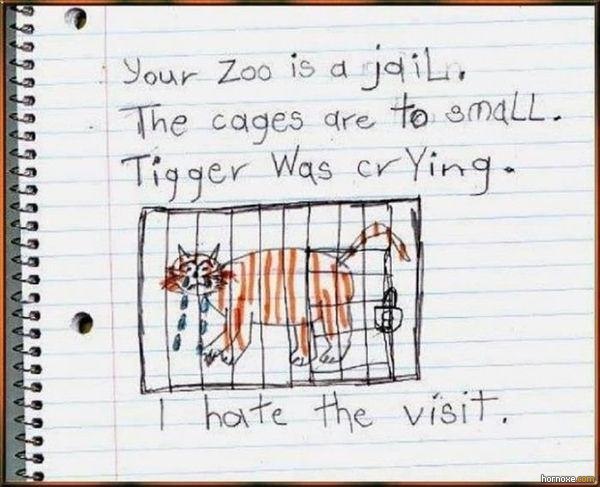 Your Zoo is a jaiL.
The cages are to smaLL.
Tigger Was crYing.
I hate the visit.
hornoxe.com